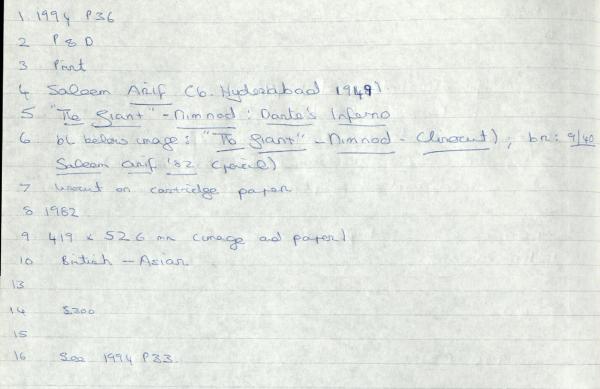 1 1994 P36
2 P & D
3 Print
4 Saleem Arif (b. Hyderabad 1949)
5 "The Giant" - Nimnod : Dante's Inferno
6 bl below image : "The Giant" - Nimnod - (linocut) ; br : 9/40
Saleem Arif '82 (pencil)
7 linocut on cartridge paper
8 1982
9 419 x 526 mm (image and paper)
10 British - Asian
13
14 £300
15
16 See 1994 P33